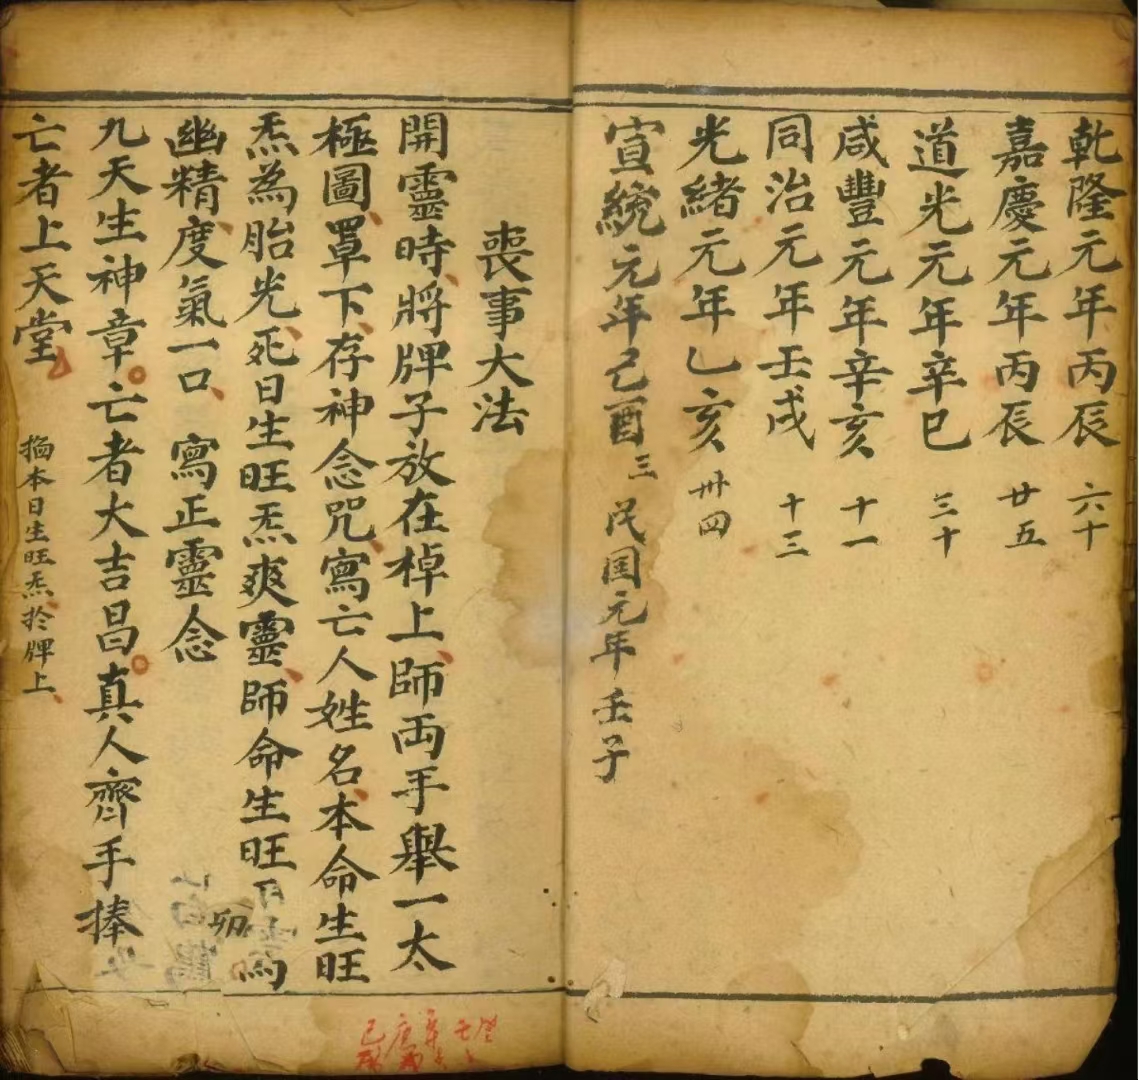 乾隆元年丙辰 六十
嘉慶元年丙辰 廿五
道光元年辛巳 三十
咸豐元年辛亥 十一
同治元年壬戌 十三
光緒元年乙亥 卅四
宣統元年己酉 三 民国元年壬子
喪事大法
開靈時、將牌子放在棹上、師両手舉一太
極圖、罩下、存神念咒、寫亡人姓名、本命生旺
炁為胎光、死日生旺炁爽靈、師命生旺
幽精、度氣一口、寫正靈念
九天生神章。亡者大吉昌。真人齊手捧
亡者上天堂。 本日生旺炁於牌上、
卯